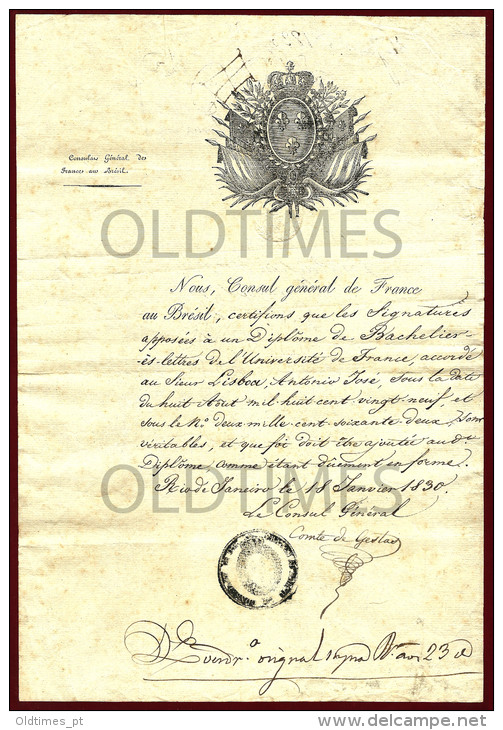 Consulat Général de
France au Brésil.
OLDTIMES
Nous, Consul général de France
au Brésil, certifions que les Signatures
apposées à un Diplôme de Bachelier-
ès-lettres de l'Université de France, accordé
au Sieur Lisboa, Antonio José, sous la date
du huit Aout mil huit cent vingt neuf, et
sous le No. deux mille cent soixante deux, sont
véritables, et que foi doit être ajoutée au dt.
Diplôme, comme étant dûement en forme.
OLDTIMES
Rio de Janeiro le 18 Janvier 1830.
Le Consul Général
Comte de Gestas
original 23
Oldtimes_pt
www.delcampe.net